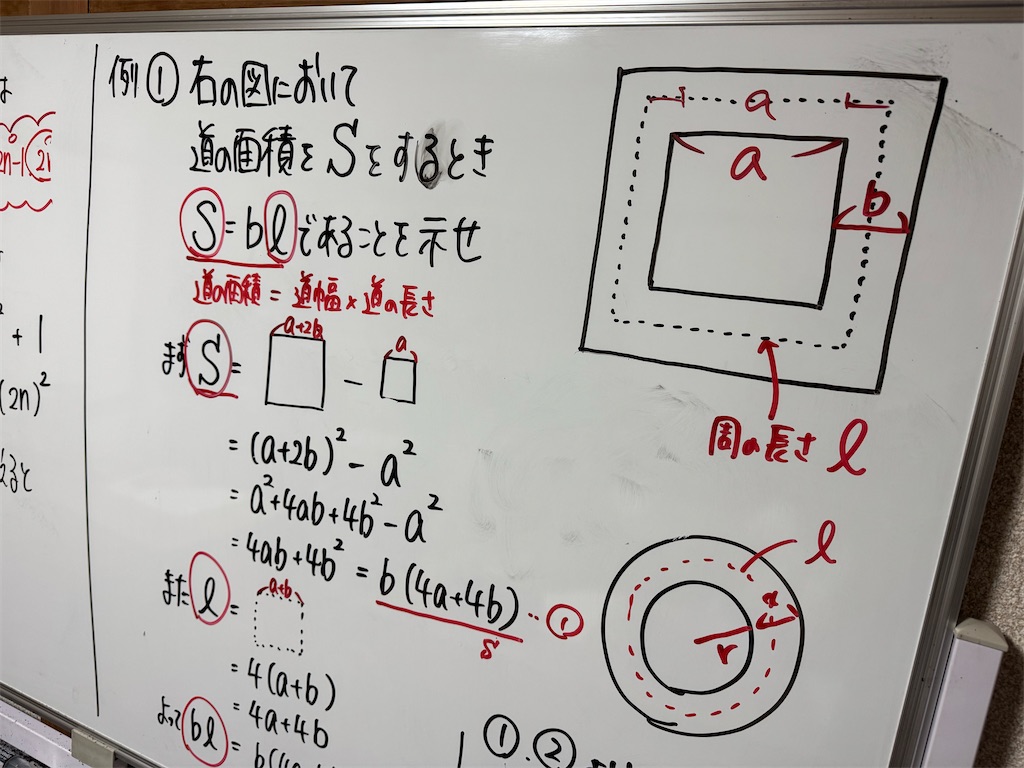 は
2n-1
+ 1
(2n)²
えると
例① 右の図において
道の面積を Sをするとき
S = bl であることを示せ
道の面積 = 道幅 × 道の長さ
a+2b
a
まず S = −
= (a+2b)² − a²
= a²+4ab+4b²−a²
= 4ab+4b² = b(4a+4b) … ①
S
a+b
また l =
= 4(a+b)
= 4a+4b
よって bl =
①.②
a
a
b
周の長さ l
l
x
r